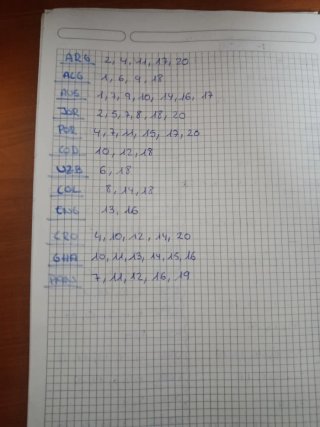 ARG 2, 4, 11, 17, 20
ALG 1, 6, 9, 18
AUS 1, 7, 9, 10, 14, 16, 17
JOR 2, 5, 7, 8, 18, 20
POR 4, 7, 11, 15, 17, 20
COD 10, 12, 18
UZB 6, 18
COL 8, 14, 18
ENG 13, 16
CRO 4, 10, 12, 14, 20
GHA 10, 11, 13, 14, 15, 16
PAN 7, 11, 12, 16, 19